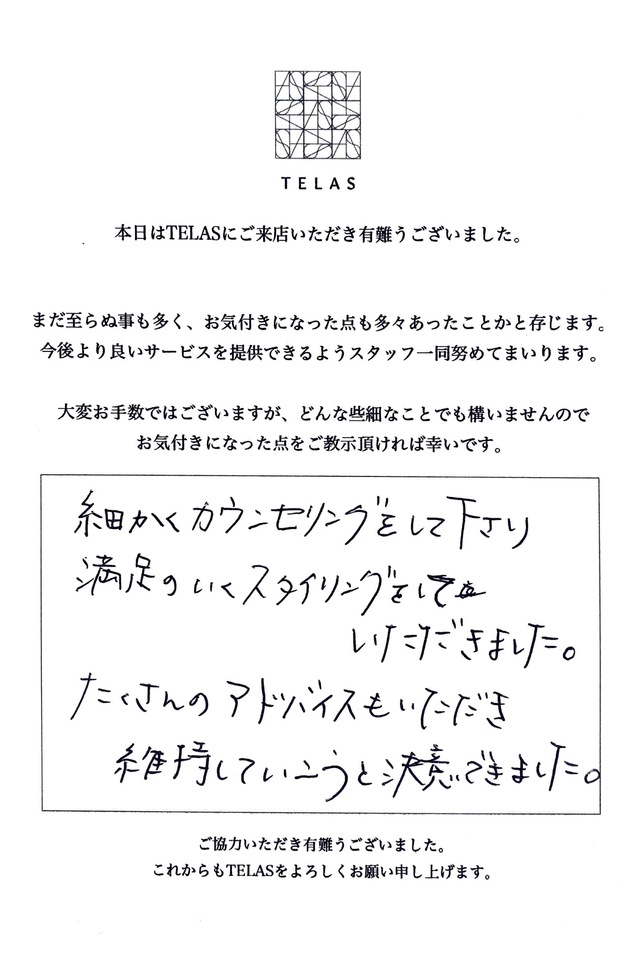 TELAS
本日はTELASにご来店いただき有難うございました。
まだ至らぬ事も多く、お気付きになった点も多々あったことかと存じます。
今後より良いサービスを提供できるようスタッフ一同努めてまいります。
大変お手数ではございますが、どんな些細なことでも構いませんので
お気付きになった点をご教示頂ければ幸いです。
細かくカウンセリングをして下さり
満足のいくスタイリングをして
いただきました。
たくさんのアドバイスもいただき
維持していこうと決意できました。
ご協力いただき有難うございました。
これからもTELASをよろしくお願い申し上げます。